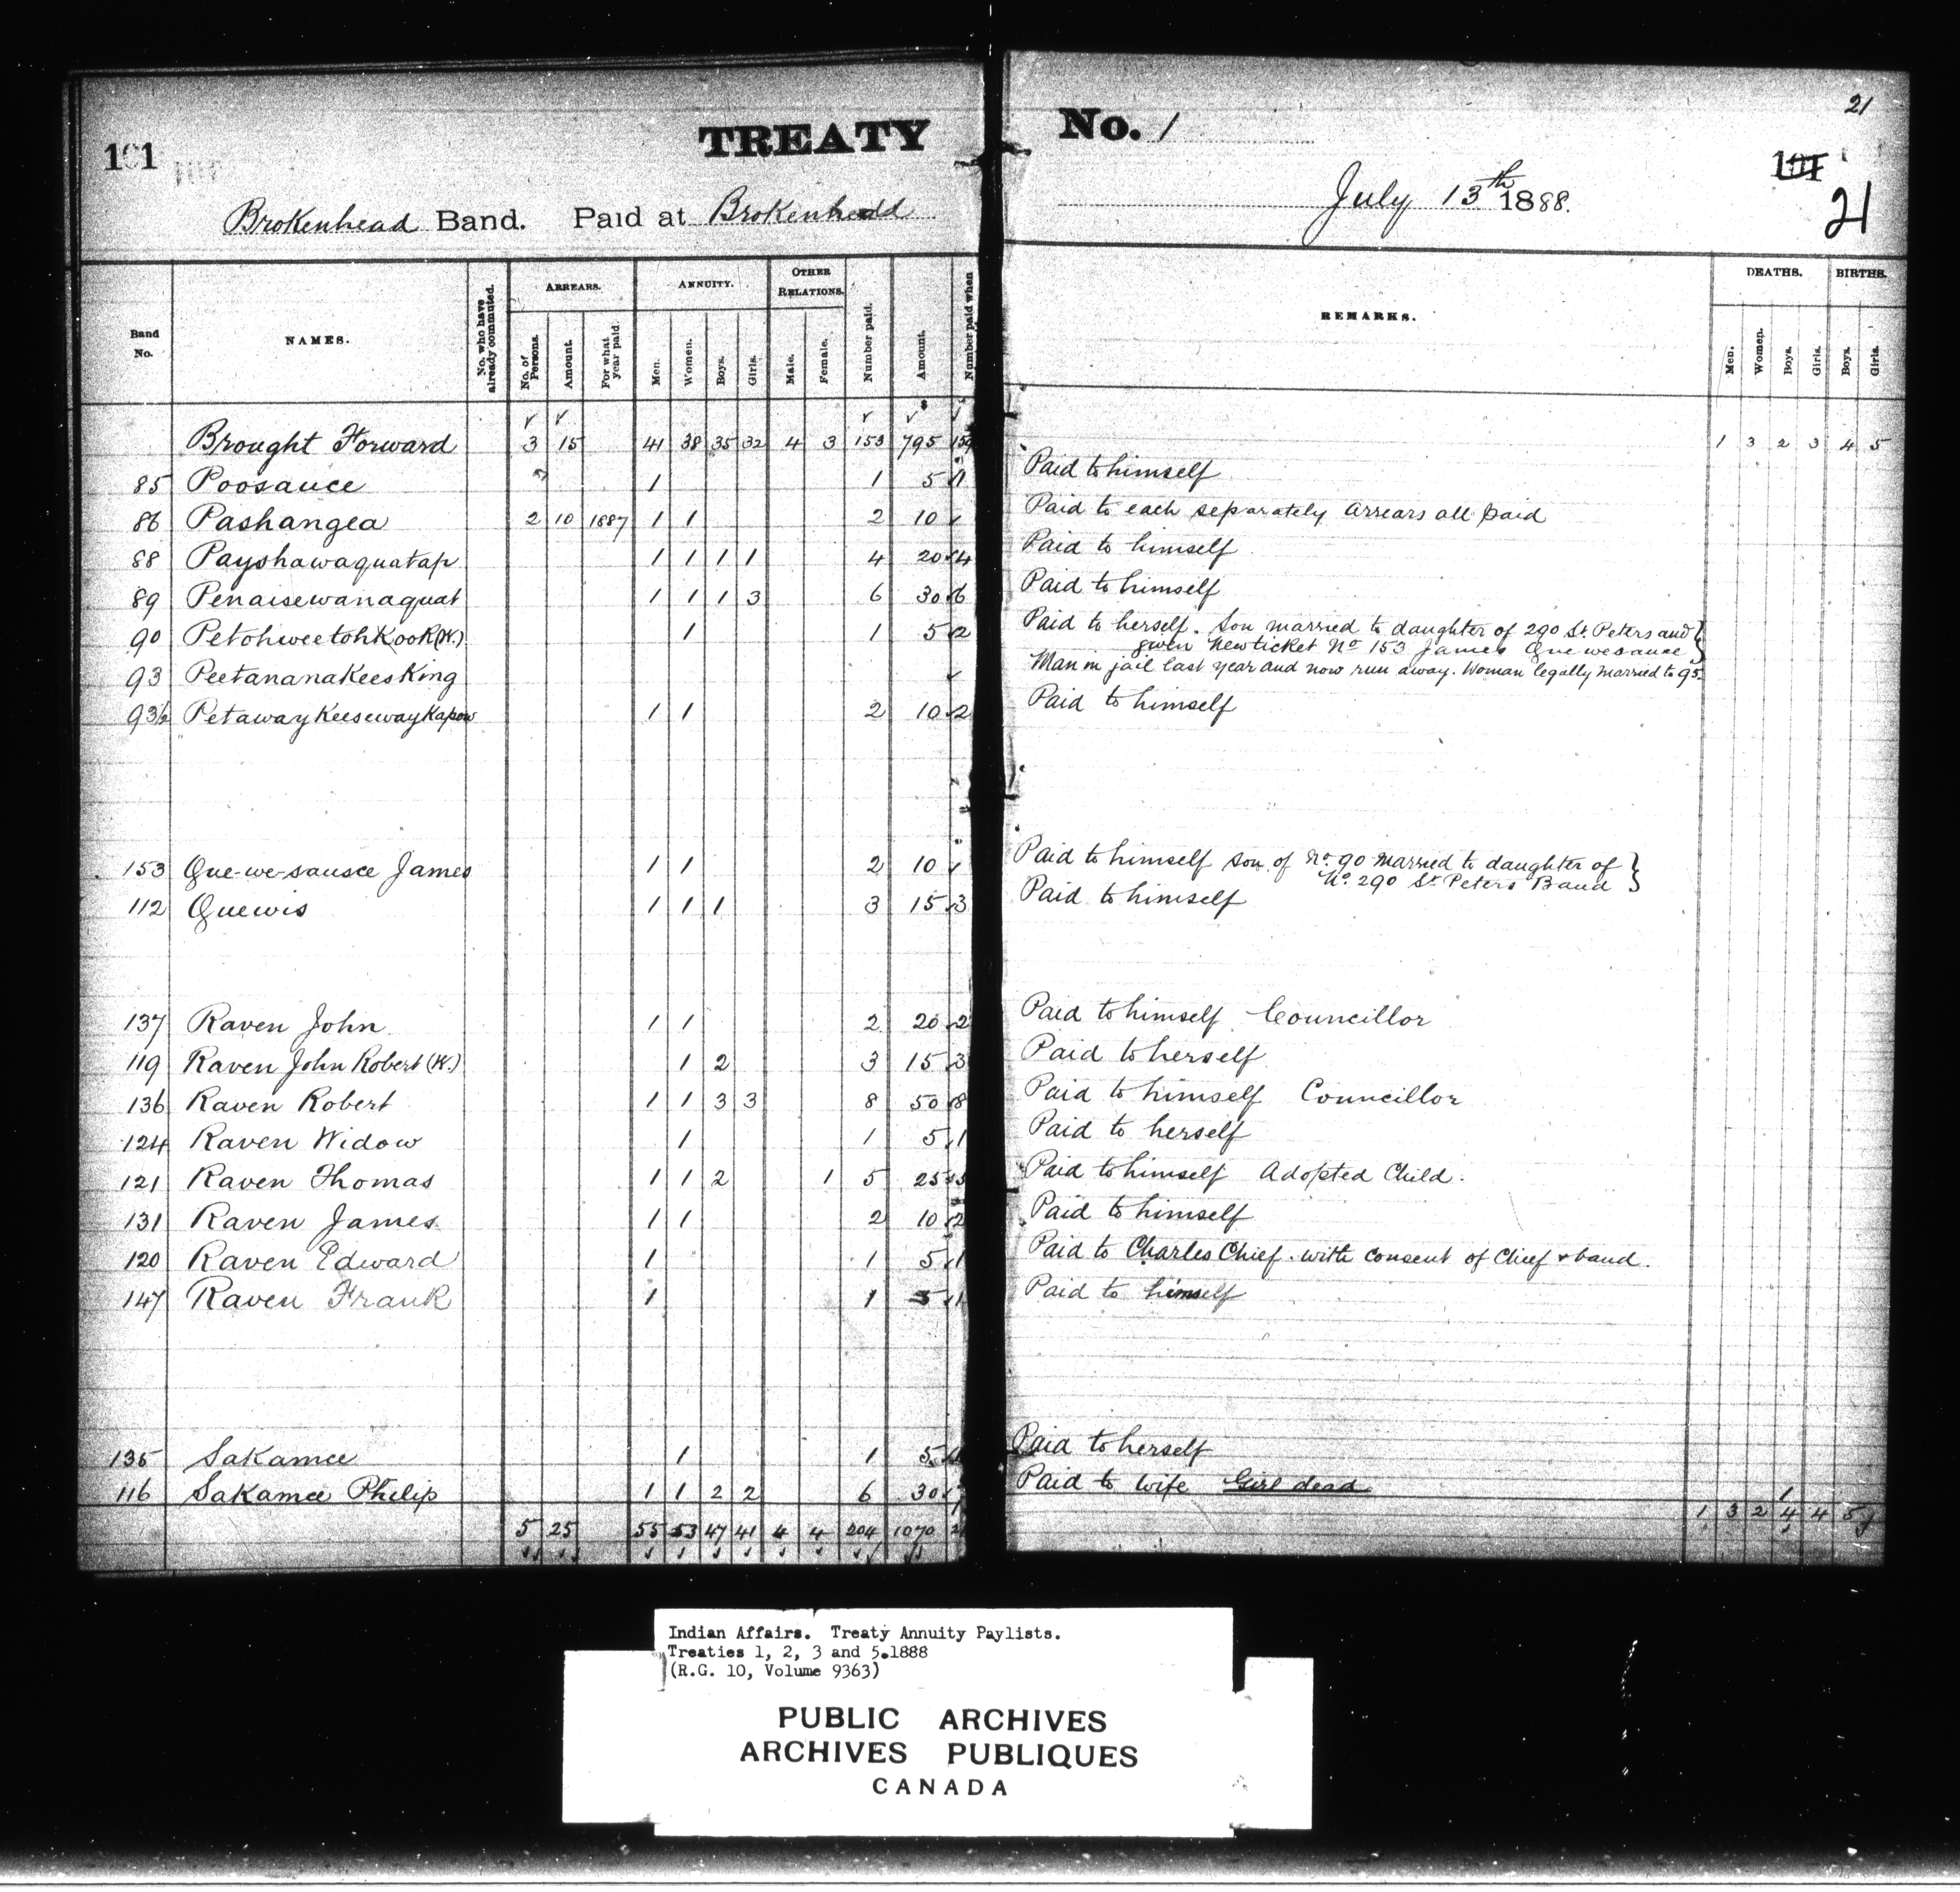 TREATY No. 1
21
101
101
21
Brokenhead Band. Paid at Brokenhead July 13th 1888.
Band No. NAMES. No. who have already commuted. ARREARS. No. of Persons. Amount. For what year paid. ANNUITY. Men. Women. Boys. Girls. OTHER RELATIONS. Male. Female. Number paid. Amount. Number paid when REMARKS. DEATHS. Men. Women. Boys. Girls. BIRTHS. Boys. Girls.
Brought Forward 3 15 41 38 35 32 4 3 153 795 1 3 2 3 4 5
85 Poosauce 1 1 5 1 Paid to himself
86 Pashangea 2 10 1887 1 1 2 10 Paid to each separately Arrears all paid
88 Payshawaquatap 1 1 1 1 4 20 4 Paid to himself
89 Penaisewanaquat 1 1 1 3 6 30 6 Paid to himself
90 PetohweetohKook (W.) 1 1 5 2 Paid to herself. Son married to daughter of 290 St. Peters and
given New ticket No 153 James Que wesauce
93 PeetananaKeesKing Man in jail last year and now run away. Woman legally married to 95.
93½ PetawayKeesewayKapow 1 1 2 10 2 Paid to himself
153 Que-we-sausce James 1 1 2 10 Paid to himself son of No. 90 married to daughter of
No. 290 St. Peters Band
112 Quewis 1 1 1 3 15 3 Paid to himself
137 Raven John 1 1 2 20 2 Paid to himself Councillor
119 Raven John Robert (W.) 1 2 3 15 3 Paid to herself
136 Raven Robert 1 1 3 3 8 50 8 Paid to himself Councillor
124 Raven Widow 1 1 5 1 Paid to herself
121 Raven Thomas 1 1 2 1 5 25 5 Paid to himself Adopted Child.
131 Raven James 1 1 2 10 2 Paid to himself
120 Raven Edward 1 1 5 1 Paid to Charles Chief. with consent of Chief & band.
147 Raven Frank 1 1 5 1 Paid to himself
135 Sakamee 1 1 5 Paid to herself
116 Sakamee Philip 1 1 2 2 6 30 Paid to wife Girl dead
5 25 55 53 47 41 4 4 204 1070 1 3 2 4 4 5
Indian Affairs. Treaty Annuity Paylists.
Treaties 1, 2, 3 and 5.1888
(R.G. 10, Volume 9363)
PUBLIC ARCHIVES
ARCHIVES PUBLIQUES
CANADA